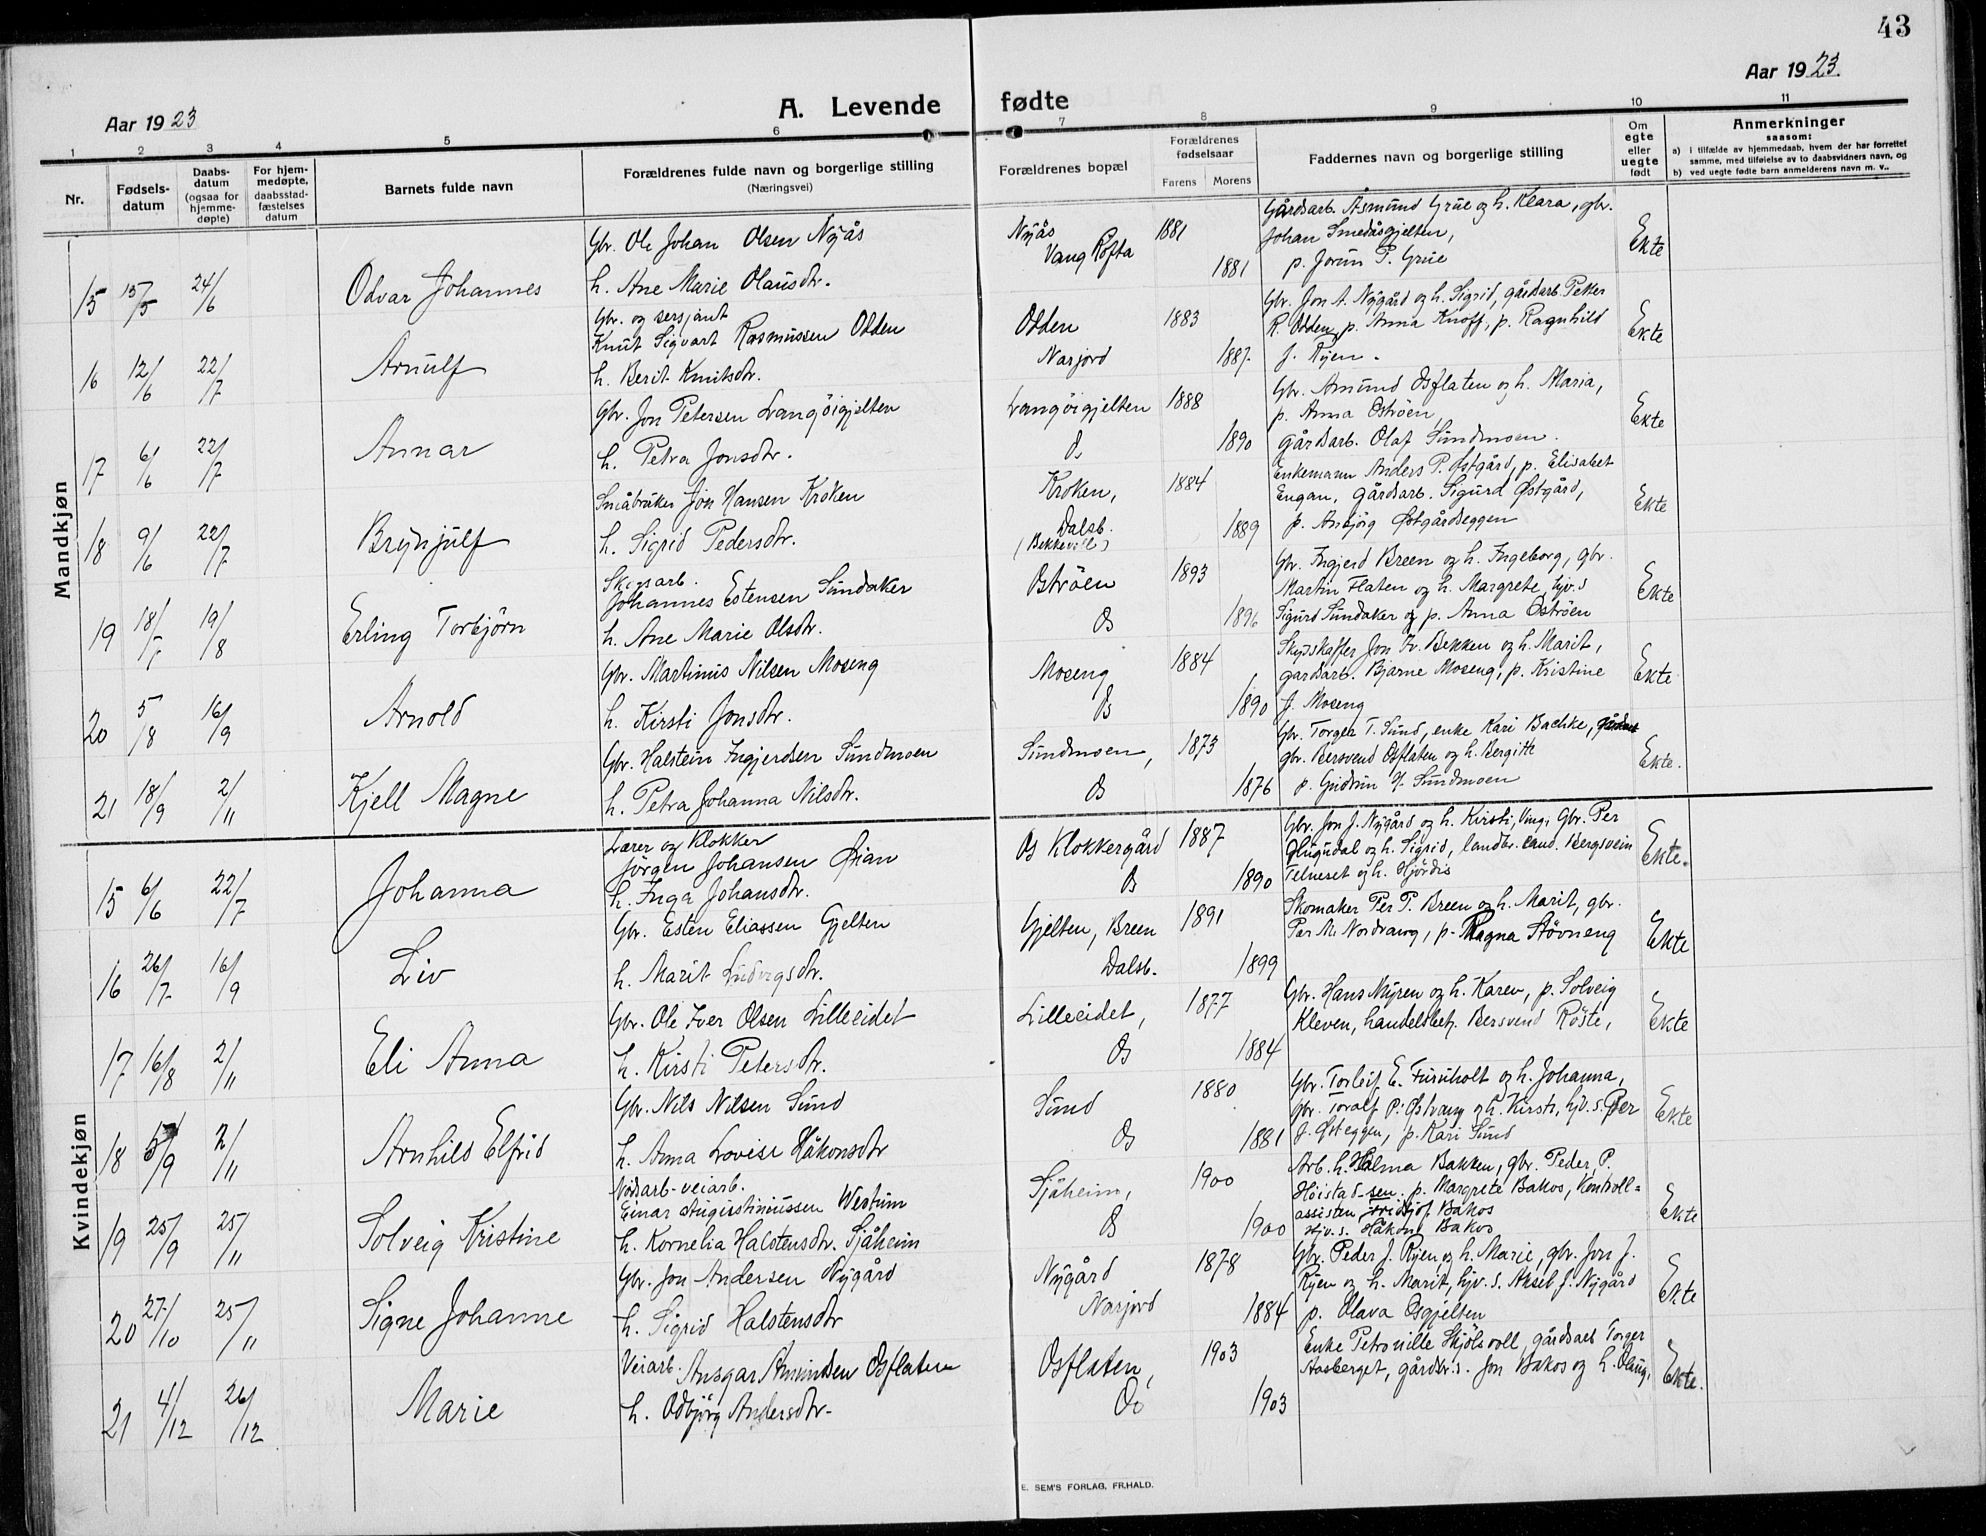 43
Aar 1923
A. Levende fødte
Aar 1923
1 2 3 4 5 6 7 8 9 10 11
Nr.
Fødsels-
datum
Daabs-
datum
(ogsaa for
hjemme-
døpte)
For hjem-
medøpte,
daabsstad-
fæstelses
datum
Barnets fulde navn
Forældrenes fulde navn og borgerlige stilling
(Næringsvei)
Forældrenes bopæl
Forældrenes
fødselsaar
Farens Morens
Faddernes navn og borgerlige stilling
Om
egte
eller
uegte
født
Anmerkninger
saasom:
a) i tilfælde av hjemmedaab, hvem der har forrettet
samme, med tilføielse av to daabsvidners navn, og
b) ved uegte fødte barn anmelderens navn m. v..
Mandkjøn
15 15/5 24/6 Odvar Johannes
Gbr. Ole Johan Olsen Nyås
h. Ane Marie Olausdtr.
Nyås
Vang Røfta
1881
1881
Gårdsarb. Asmund Grue og h. Klara, gbr.
Johan Smedåsgjelten,
p. Jorun P. Grue
Ekte
16 12/6 22/7 Arnulf
Gbr. og sersjant
Knut Sigvart Rasmussen Odden
h. Berit Knutsdtr.
Odden
Narjord
1883
1887
Gbr. Jon A. Nygård og h. Sigrid, gårdsarb. Petter
R. Odden, p. Anna Knoff, p. Ragnhild
J. Ryen.
Ekte
17 6/6 22/7 Annar
Gbr. Jon Petersen Langöigjelten
h. Petra Jonsdtr.
Langöigjelten
1888
1890
Gbr. Amund Osflaten og h. Maria,
p. Anna Oströen,
gårdsarb. Olaf Sundmoen.
Ekte
18 9/6 22/7 Brynjulf
Småbruker Jon Hansen Kroken
h. Sigrid Pedersdtr.
Kroken,
Dalsb.
1884
1889
Enkemann Anders P. Østgård, p. Elisabet
Engan, gårdsarb. Sigurd Østgård,
p. Anbjörg Østgårdseggen
Ekte
19 18/7 19/8 Erling Torbjörn
Skogsarb.
Johannes Estensen Sundaker
h. Ane Marie Olsdtr.
(Bekkevold)
Oströen
Os
1893
1896
Gbr. Ingjerd Breen og h. Ingeborg, gbr.
Martin Flaten og h. Margrete, hjv.s
Sigurd Sundaker og p. Anna Oströen
Ekte
20 5/8 16/9 Arnold
Gbr. Martinus Nilsen Moseng
h. Kirsti Jonsdtr.
Moseng
Os
1884
1890
Skydskaffer Jon Iv. Bekken og h. Marit,
gardsarb. Bjarne Moseng, p. Kristine
J. Moseng
Ekte
21 18/9 2/11 Kjell Magne
Gbr. Halstein Ingjerdsen Sundmoen
h. Petra Johanna Nilsdtr.
Sundmoen,
Os
1873
1876
Gbr. Torger T. Sund, enke Kari Bachke,
gbr. Bersvend Osflaten og h. Bergitte
p. Gudrun H. Sundmoen
Ekte.
Kvindekjøn
15 6/6 22/7 Johanna
Lærer og Klokker
Jörgen Johansen Øian
h. Inga Johansdtr.
Os Klokkergård
Os
1887
1890
Gbr. Jon J. Nygård og h. Kirsti, Ving, Gbr. Per
og h. Sigrid, landbr. cand. Bergsvein
Telneset og h. Hjördis
Ekte.
16 26/7 16/9 Liv
Gbr. Esten Eliassen Gjelten
h. Marit Ludvigsdtr.
Gjelten, Breen
Dalsb.
1891
1899
Skomaker Per P. Breen og h. Marit, gbr.
Per M. Nordvang, p. Magna Stövneng
Ekte
17 16/8 2/11 Eli Anna
Gbr. Ole Iver Olsen Lilleeidet
h. Kirsti Petersdtr.
Lilleeidet,
Os
1877
1884
Gbr. Hans Myren og h. Karen, p. Solveig
Kleven, handelsbetj. Bersvend Röste,
Ekte
18 5/9 2/11 Arnhild Elfrid
Gbr. Nils Nilsen Sund
h. Anna Lovise Håkonsdtr
Sund
Os
1880
1881
Gbr. Torleif E. Furuholt og h. Johanna,
Gbr. Toralf P. Østvang og h. Kirsti, hjv.s. Per
J. Østeggen, p. Kari Sund
Ekte
19 25/9 25/11 Solveig Kristine
veiarb.
Einar Augustinussen Westum
h. Kornelia Halstensdtr. Sjåheim
Sjåheim,
Os
1900
1900
Arb. h. Halma Bakken, gbr. Peder P.
Höistad-sen. p. Margrete Bakos, Kontroll-
assisten Fridtjof Bakos
Hjv.s. Håkon Bakos
Ekte
20 27/10 25/11 Signe Johanne
Gbr. Jon Andersen Nygård
h. Sigrid Halstensdtr
Nygård
Narjord
1878
1884
Gbr. Peder J. Ryen og h. Marie, gbr. Jon J.
Ryen og h. Marit, hjv.s. Aksel J. Nygård
p. Olava Osgjelten
Ekte
21 4/12 26/12 Marie
Veiarb. Ansgar Amundsen Osflaten
h. Odbjörg Andersdtr.
Osflaten,
Os
1903
1903
Enke Petronille Skjölsvoll, gårdsarb Torger
Aasberget, gårdbr.s. Jon Bakos og h. Olaug,
Ekte.
E. SEM'S FORLAG, FR.HALD.